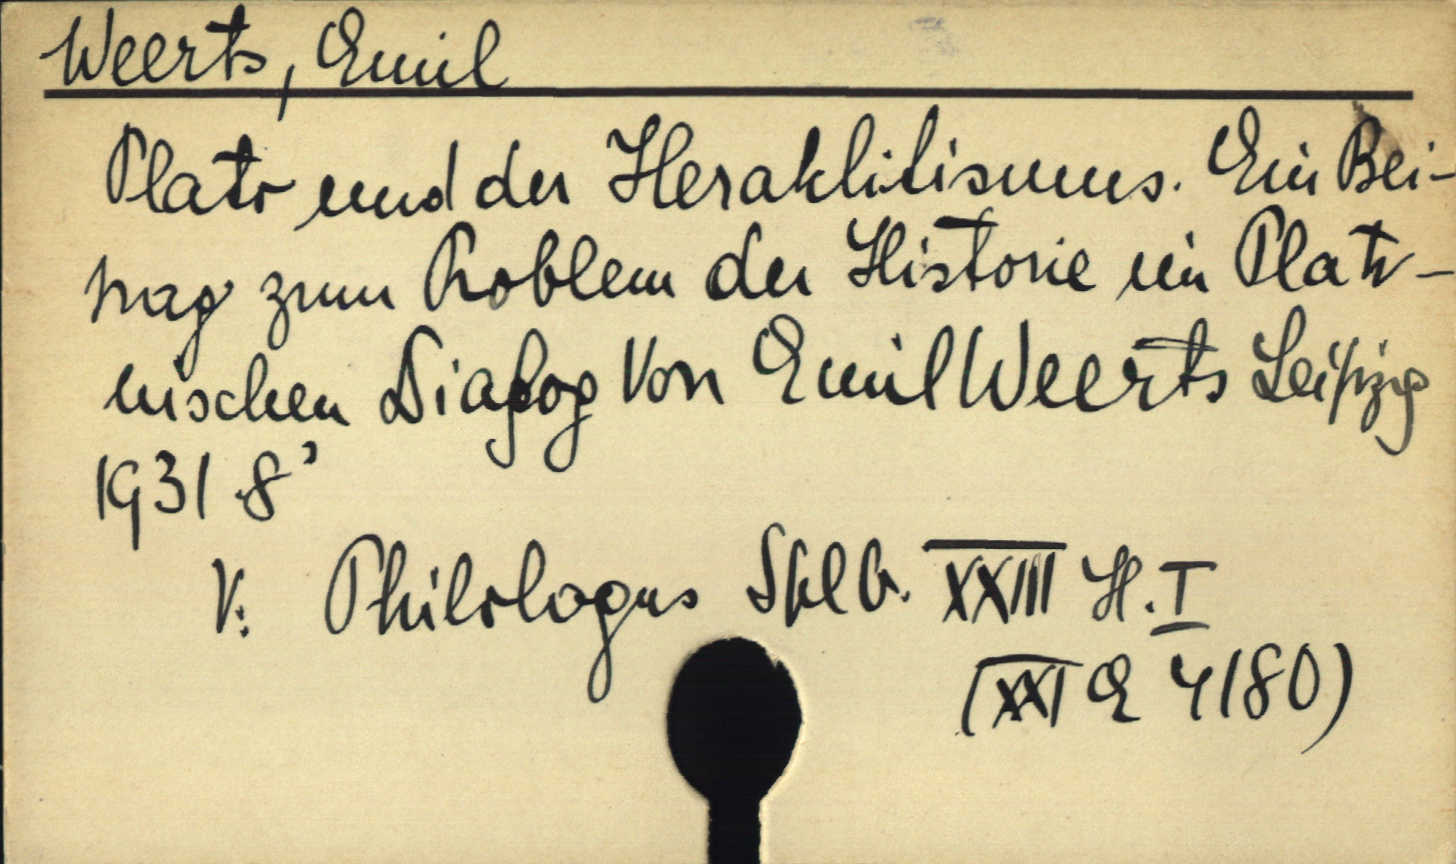 Weerts, Emil
Plato und der Heraklitismus. Ein Bei-
trag zum Problem der Historie im Plato-
nischen Dialog Von Emil Weerts Leipzig
1931 8°
V. Philologus Splb. XXIII H. I
(XXI E 4180)